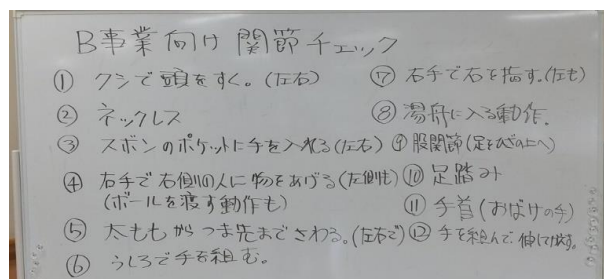 B事業向け 関節チェック
① クシで頭をすく。(左右)
② ネックレス
③ スボンのポケットに手を入れる(左右)
④ 右手で右側の人に物をあげる(左側も)
(ボールを渡す動作も)
⑤ 太ももからつま先までさわる。(左右で)
⑥ うしろで手を組む。
⑦ 右手で右を指す。(左も)
⑧ 湯舟に入る動作.
⑨ 股関節(足をひざの上へ)
⑩ 足踏み
⑪ 手首(おばけの手)
⑫ 手を組んで、伸ばす。